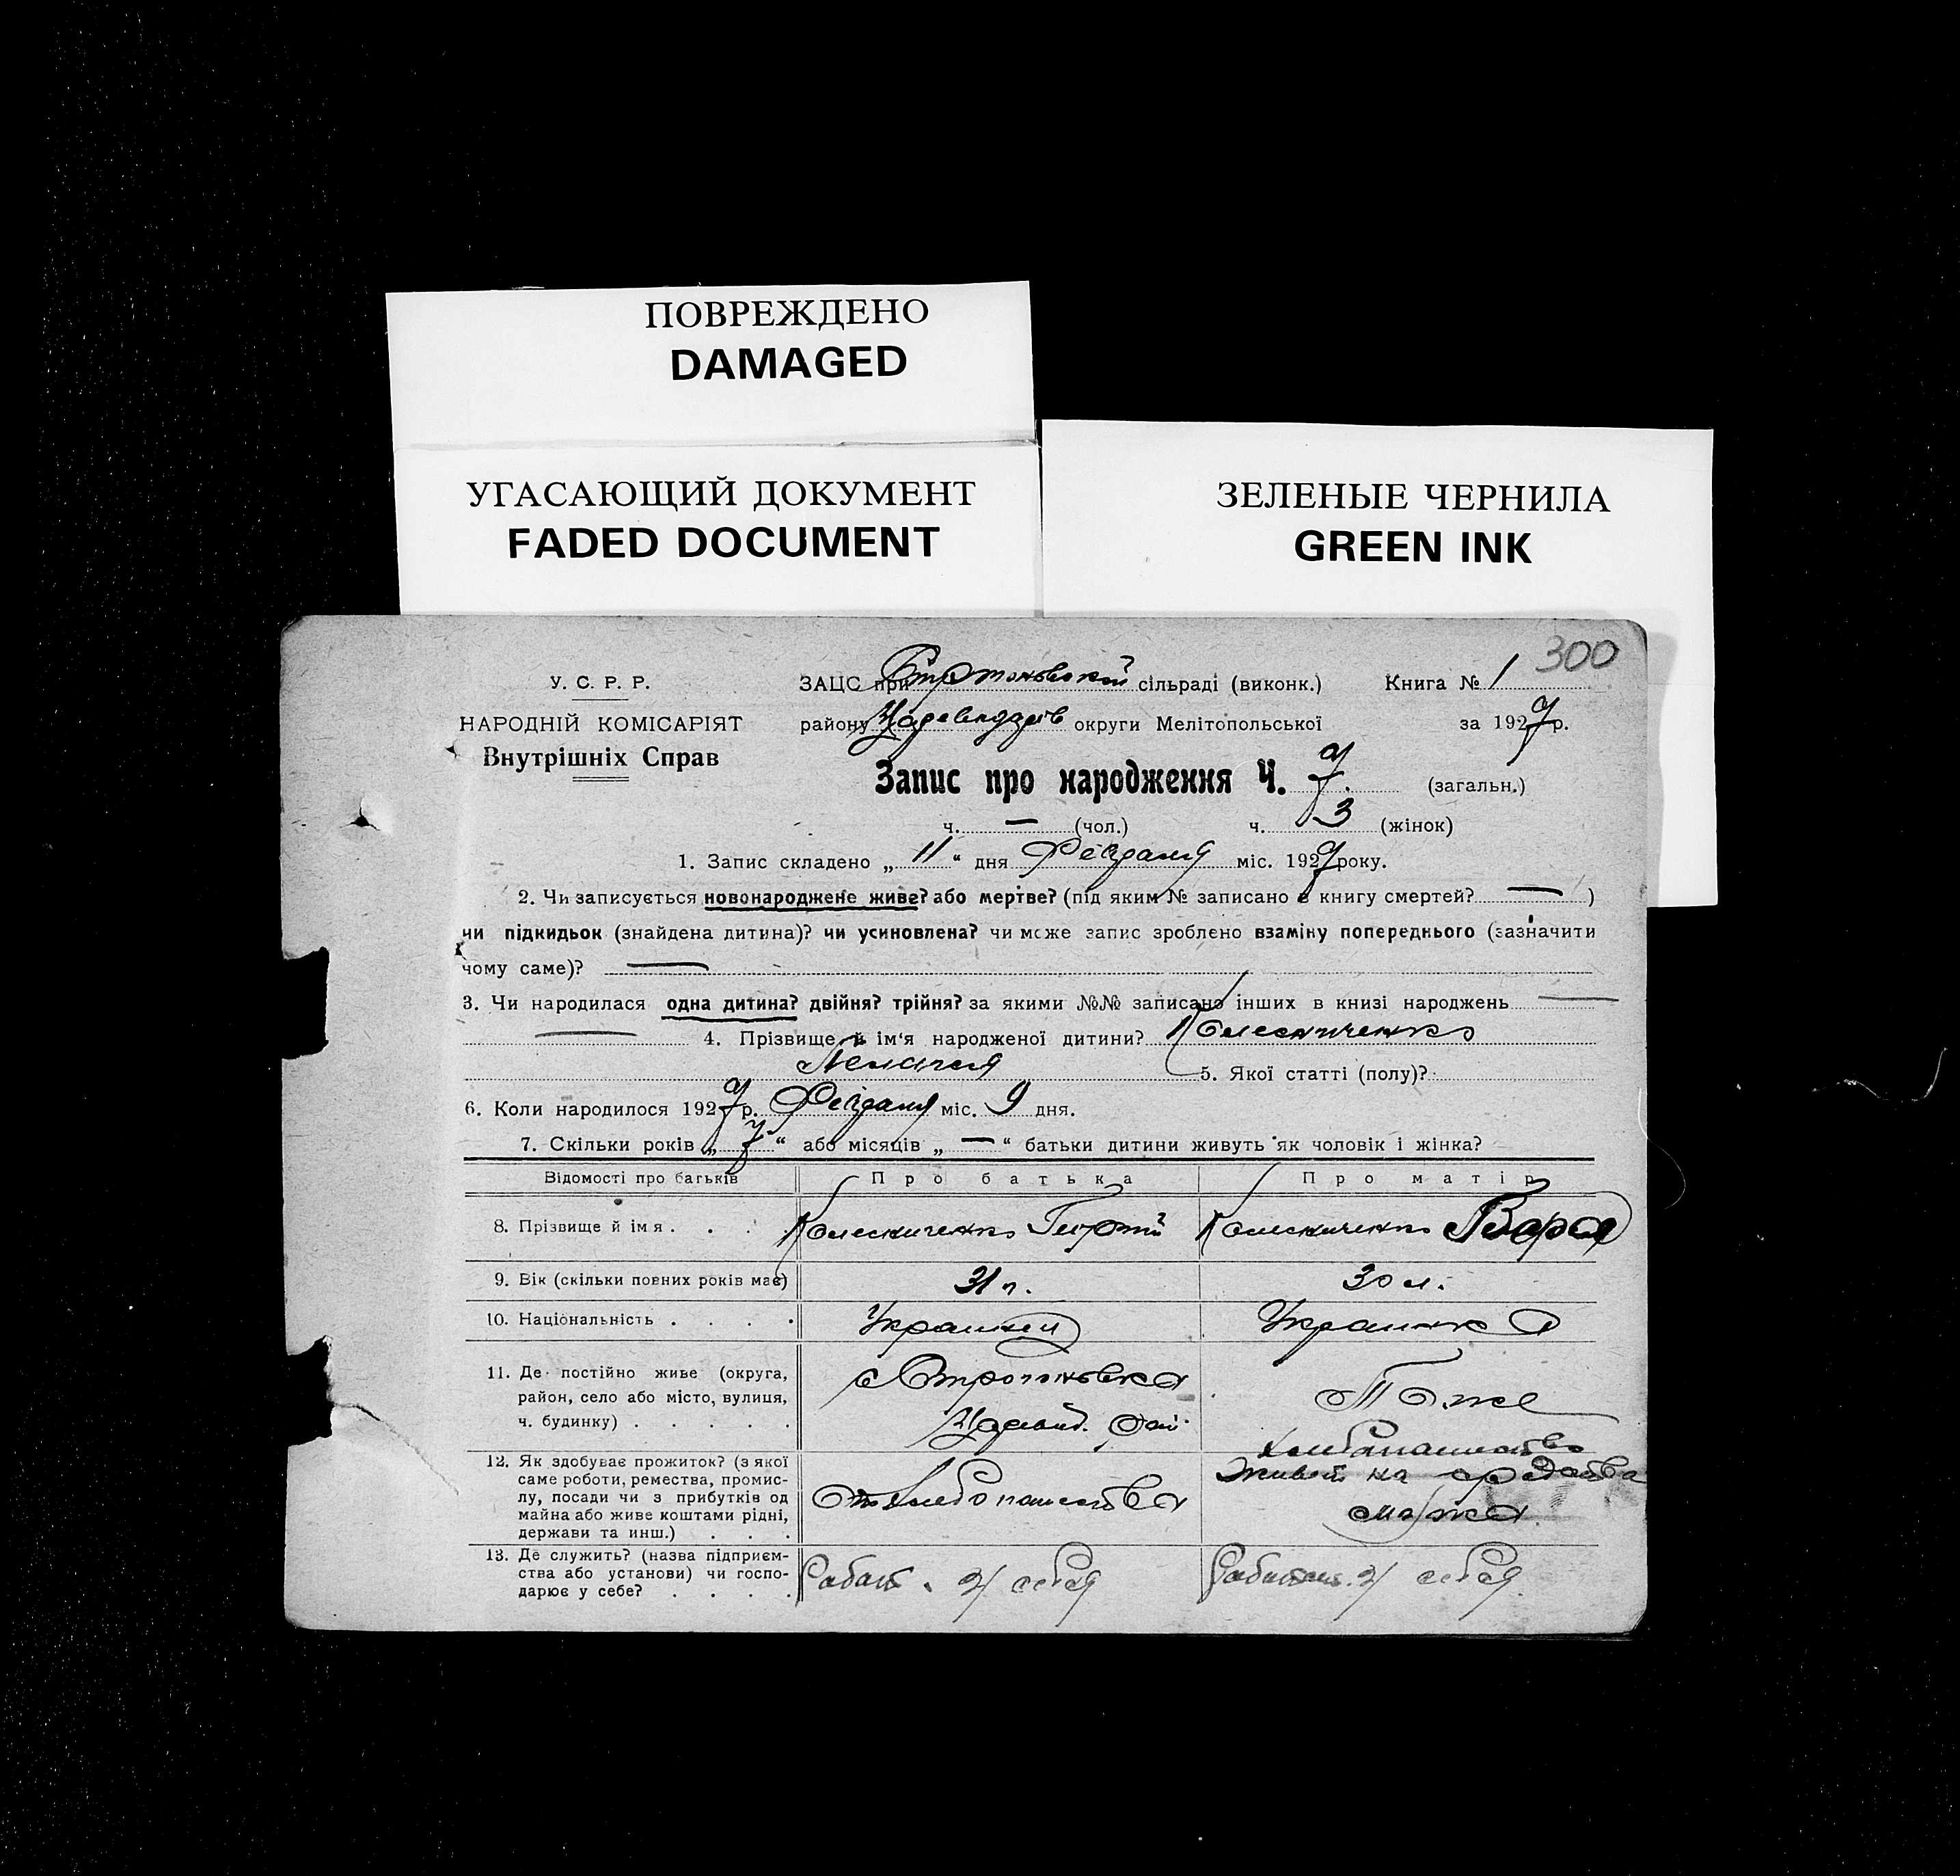 ПОВРЕЖДЕНО
DAMAGED
УГАСАЮЩИЙ ДОКУМЕНТ
FADED DOCUMENT
ЗЕЛЕНЫЕ ЧЕРНИЛА
GREEN INK
300
У. С. Р. Р.
НАРОДНІЙ КОМІСАРІЯТ
Внутрішніх Справ
ЗАЦС при сільраді (виконк.) Книга № 1
району округи Мелітопольської за 1927 р.
Запис про народження Ч. 7. (загальн.)
ч. — (чол.) ч. 3 (жінок)
1. Запис складено „ 11 “ дня міс. 1927 року.
2. Чи записується новонароджене живе? або мертве? (під яким № записано в книгу смертей? — )
чи підкидьок (знайдена дитина)? чи усиновлена? чи може запис зроблено взаміну попереднього (зазначити
чому саме)? —
3. Чи народилася одна дитина? двійня? трійня? за якими №№ записано інших в книзі народжень —
— 4. Прізвище й ім‘я народженої дитини? Колесниченко
Пелагея 5. Якої статті (полу)?
6. Коли народилося 1927 р. міс. 9 дня.
7. Скільки років „ 7 “ або місяців „ — “ батьки дитини живуть як чоловік і жінка?
Відомості про батьків Про батька Про матір
8. Прізвище й імя . . . Колесниченко Георгій Колесниченко Варя
9. Вік (скільки повних років має) 31 г. 30 л.
10. Національність . . . . Украинец Украинка
11. Де постійно живе (округа,
район, село або місто, вулиця,
ч. будинку) . . . . .
Тоже
12. Як здобуває прожиток? (з якої
саме роботи, ремества, промис-
лу, посади чи з прибутків од
майна або живе коштами рідні,
держави та инш.) . . .
От хлебопашества
хлебопашество
живет на средства
мужа
13. Де служить? (назва підприєм-
ства або установи) чи госпо-
дарює у себе? . . . .
Работ. у себя
у себя